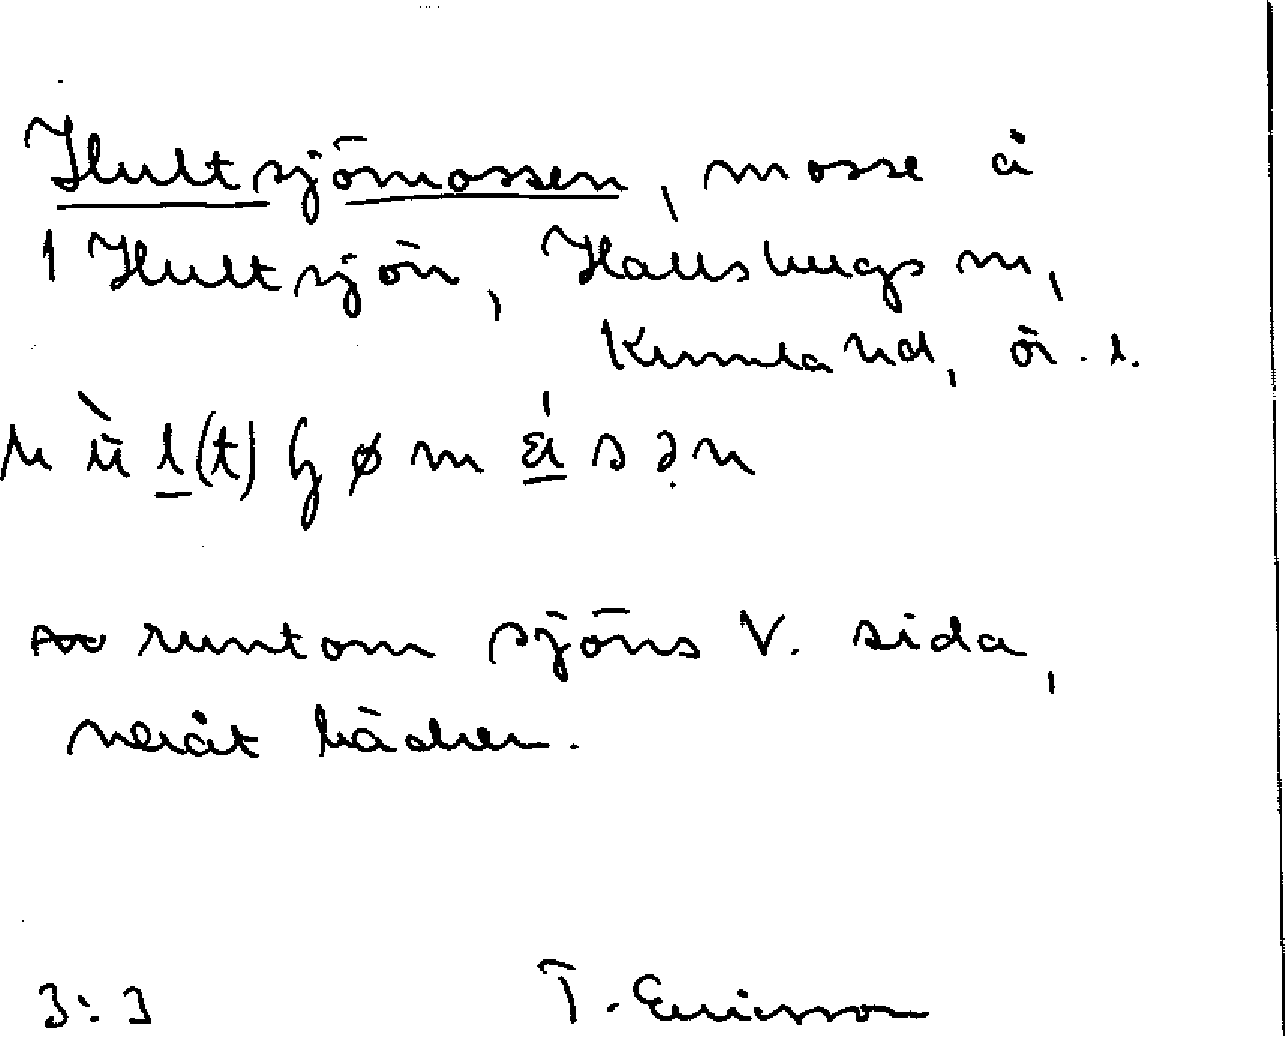 Hultsjömossen, mosse å
1 Hultsjön, Hallsbergs sn,
Kumla hd, Ör. l.
runtom sjöns V. sida,
neråt bäcken.
3:3 T. Ericsson